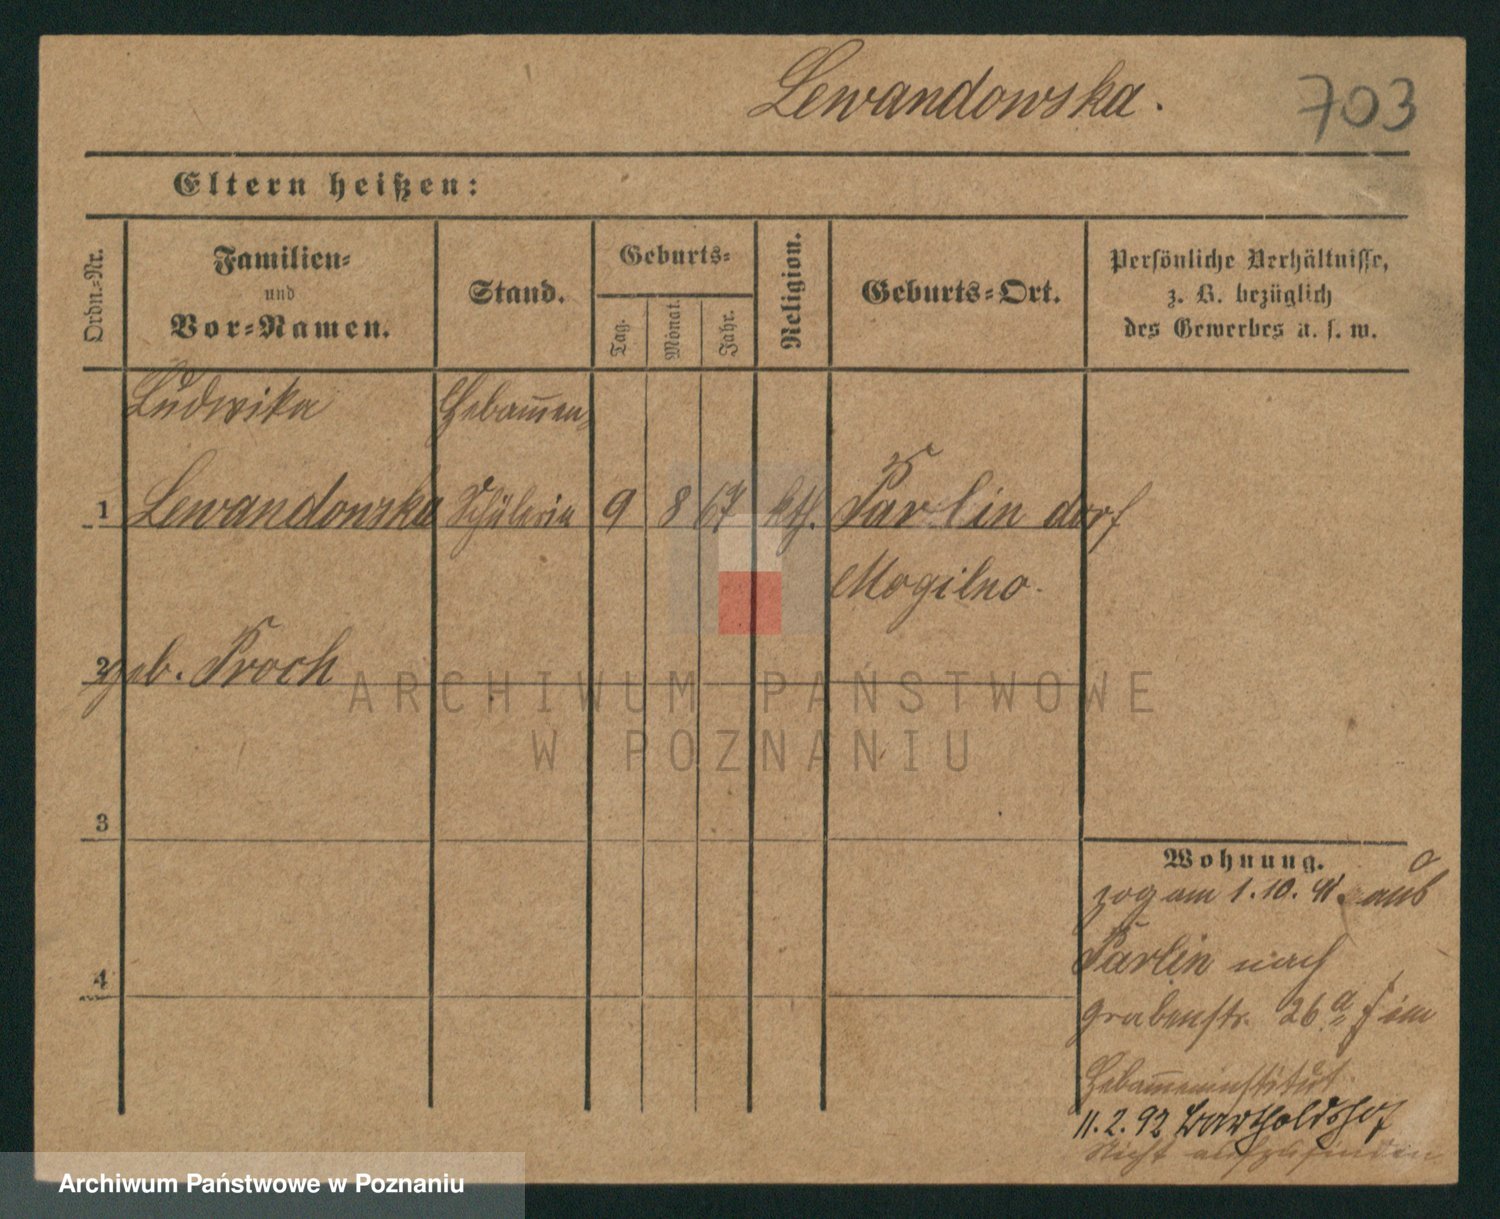 Lewandowska.
703
Eltern heißen:
Ordn.-Nr.
Familien-
und
Vor-Namen.
Stand.
Geburts-
Tag.
Monat.
Jahr.
Religion.
Geburts-Ort.
Persönliche Verhältnisse,
z. B. bezüglich
des Gewerbes u. s. w.
Ludwika
Hebam̄en-
1 Lewandowska Schülerin 9 8 67 kth. Parlin dorf
Mogilno.
2 geb. Proch
3
4
Wohnung.
zog am 1.10.91. aus
Parlin nach
Grabenstr. 26a im
Hebam̄eninstitut.
11.2.92 Bartholdshof
Nicht aufzufinden
ARCHIWUM PAŃSTWOWE
W POZNANIU
Archiwum Państwowe w Poznaniu